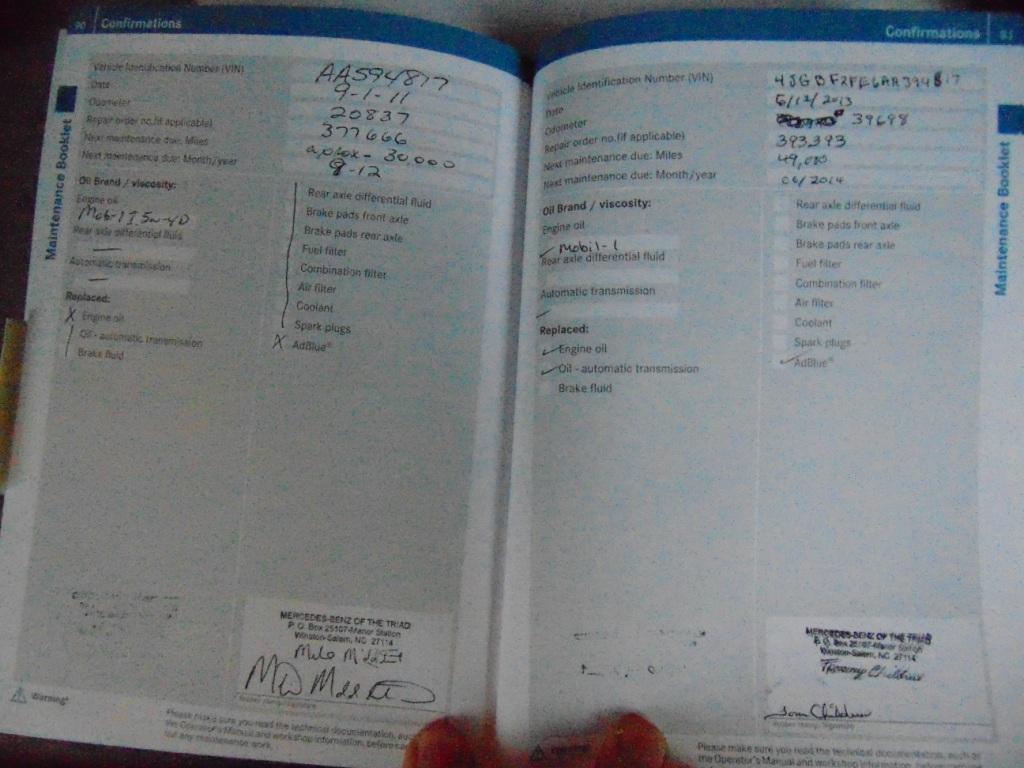 90 Confirmations
Maintenance Booklet
Vehicle Identification Number (VIN) AA594817
Date 9-1-11
Odometer 20837
Repair order no.(if applicable) 377666
Next maintenance due: Miles aprox- 30,000
Next maintenance due: Month/year 9-12
Oil Brand / viscosity:
Engine oil
Mob-1 5w-40
Rear axle differential fluid
Automatic transmission
Replaced:
X Engine oil
Oil - automatic transmission
Brake fluid
Rear axle differential fluid
Brake pads front axle
Brake pads rear axle
Fuel filter
Combination filter
Air filter
Coolant
Spark plugs
X AdBlue®
MERCEDES-BENZ OF THE TRIAD
P. O. Box 25107-Manor Station
Winston-Salem, NC 27114
Warning!
Please make sure you read the technical documentation,
the Operator's Manual and workshop information, before
out any maintenance work.
Confirmations
Maintenance Booklet
Vehicle Identification Number (VIN)
Date 6/12/2013
Odometer 39698
Repair order no.(if applicable) 393393
Next maintenance due: Miles 49,000
Next maintenance due: Month/year 06/2014
Oil Brand / viscosity:
Engine oil
Mobil-1
Rear axle differential fluid
Automatic transmission
Replaced:
Engine oil
Oil - automatic transmission
Brake fluid
Rear axle differential fluid
Brake pads front axle
Brake pads rear axle
Fuel filter
Combination filter
Air filter
Coolant
Spark plugs
AdBlue®
MERCEDES-BENZ OF THE TRIAD
P. O. Box 25107-Manor Station
Winston-Salem, NC 27114
Tom Childress
Please make sure you read the technical documentation, such as
the Operator's Manual and workshop information, before